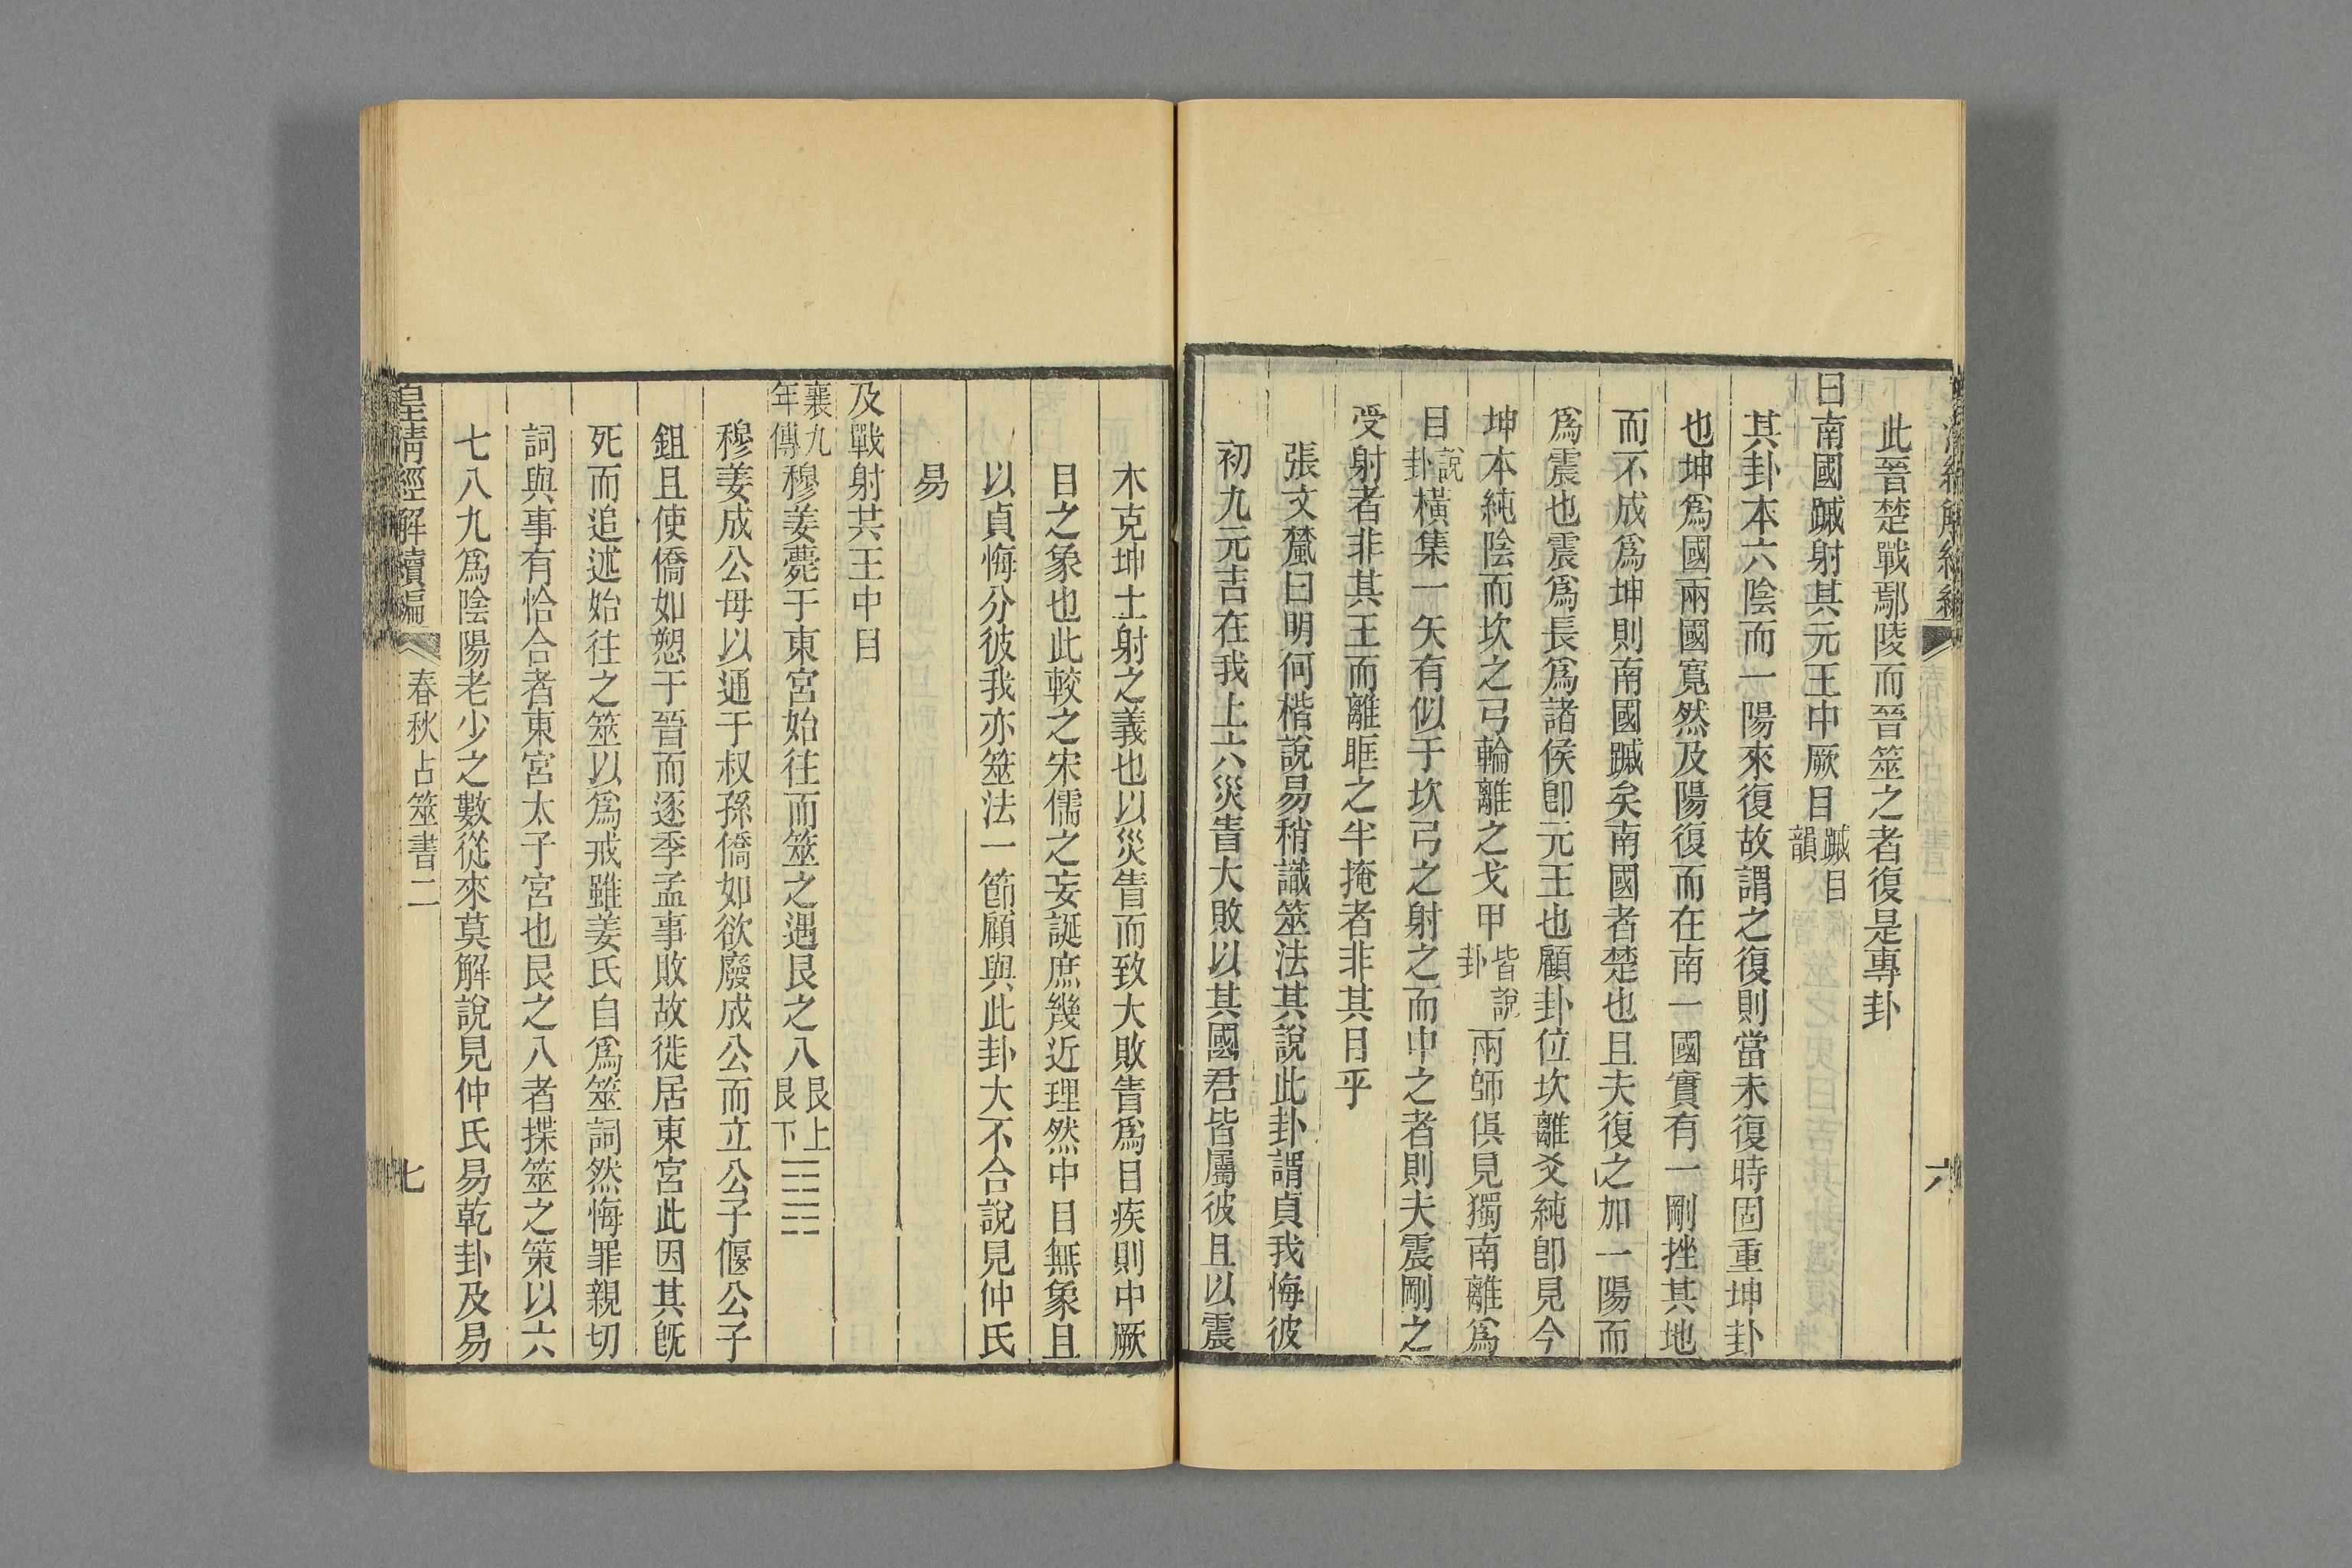 此晉楚戰鄢陵而晉筮之者復是專卦
曰南國䠞射其元王中厥目䠞目韻
其卦本六陰而一陽來復故謂之復則當未復時固重坤卦
也坤爲國兩國寬然及陽復而在南一國實有一剛挫其地
而不成爲坤則南國䠞矣南國者楚也且夫復之加一陽而
爲震也震爲長爲諸侯卽元王也顧卦位坎離爻純卽見今
坤本純陰而坎之弓輪離之戈甲皆說卦兩師俱見獨南離爲
目說卦橫集一矢有似于坎弓之射之而中之者則夫震剛之
受射者非其王而離眶之半掩者非其目乎
張文䕻曰明何楷說易稍識筮法其說此卦謂貞我悔彼
初九元吉在我上六災眚大敗以其國君皆屬彼且以震
木克坤土射之義也以災眚而致大敗眚爲目疾則中厥
目之象也此較之宋儒之妄誕庶幾近理然中目無象且
以貞悔分彼我亦筮法一節顧與此卦大不合說見仲氏
易
及戰射共王中目
襄九年傳穆姜薨于東宮始往而筮之遇艮之八艮上艮下☶☶
穆姜成公母以通于叔孫僑如欲廢成公而立公子偃公子
鉏且使僑如愬于晉而逐季孟事敗故徙居東宮此因其旣
死而追述始往之筮以爲戒雖姜氏自爲筮詞然悔罪親切
詞與事有恰合者東宮太子宮也艮之八者揲筮之策以六
七八九爲陰陽老少之數從來莫解說見仲氏易乾卦及易
皇淸經解續編 春秋占筮書二
七
六